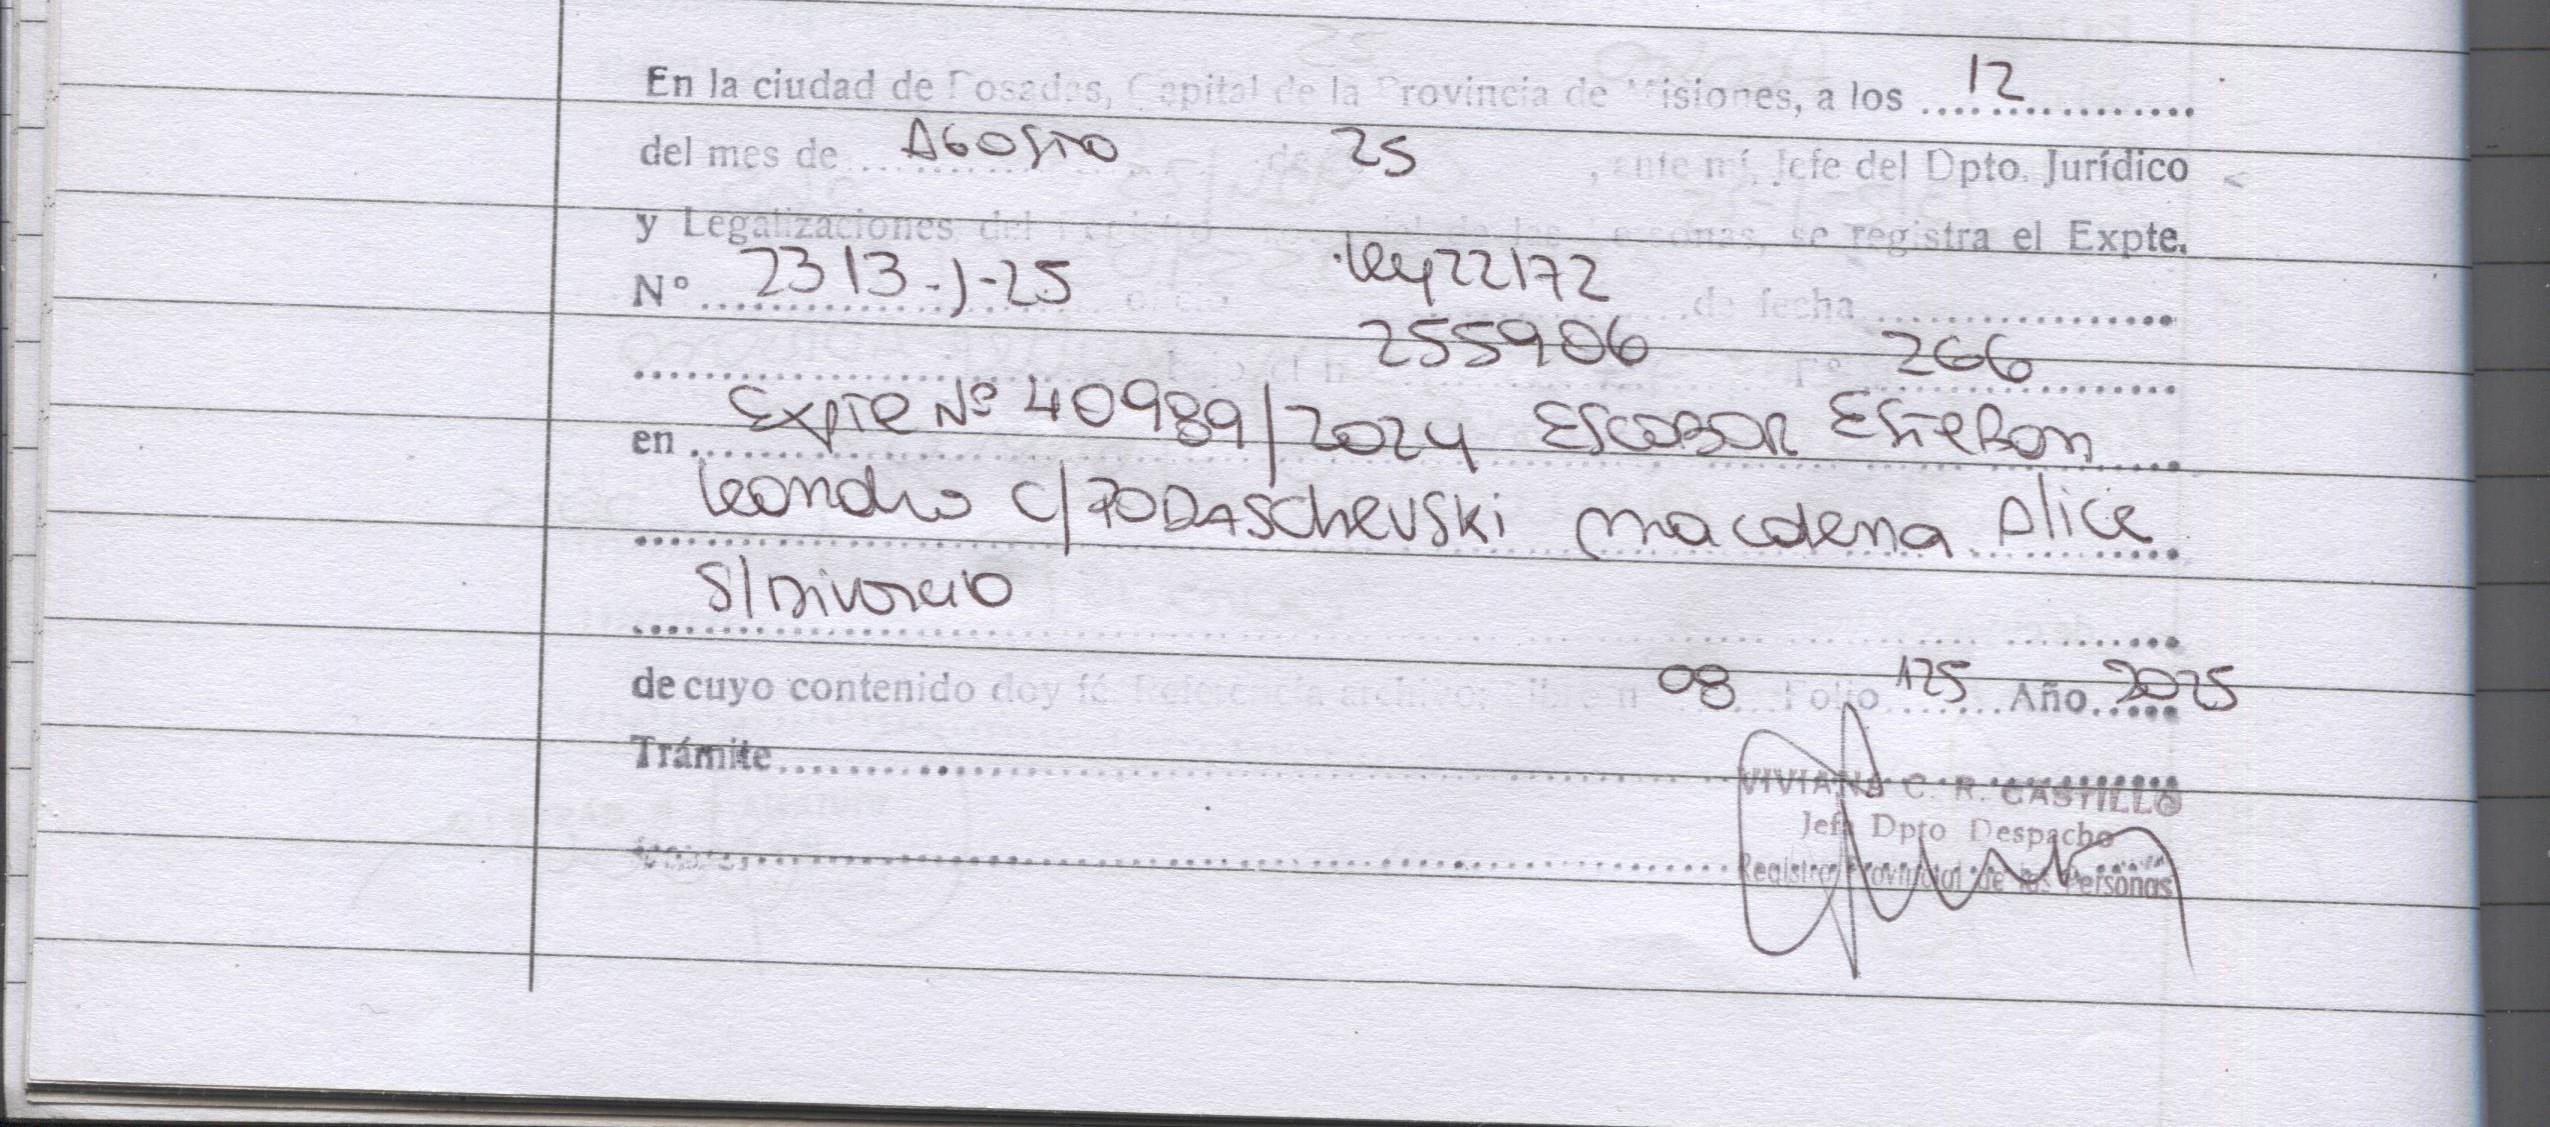 En la ciudad de Posadas, Capital de la Provincia de Misiones, a los 12
del mes de Agosto de 25, ante mí, Jefe del Dpto. Jurídico
y Legalizaciones del Registro de las Personas, se registra el Expte.
Nº 2313-J-25 oficio ley 22172 de fecha
255906 Fº 266
en Expte Nº 40989/2024 Escobar Esteban
Leandro c/ PODASCHEVSKI macdena Alice
S/ Divorcio
de cuyo contenido doy fé. Referencia archivo: Libro nº 08 Folio 125 Año 2025
Trámite
VIVIANA C. R. CASTILLO
Jefa Dpto Despacho
Registro Provincial de las Personas